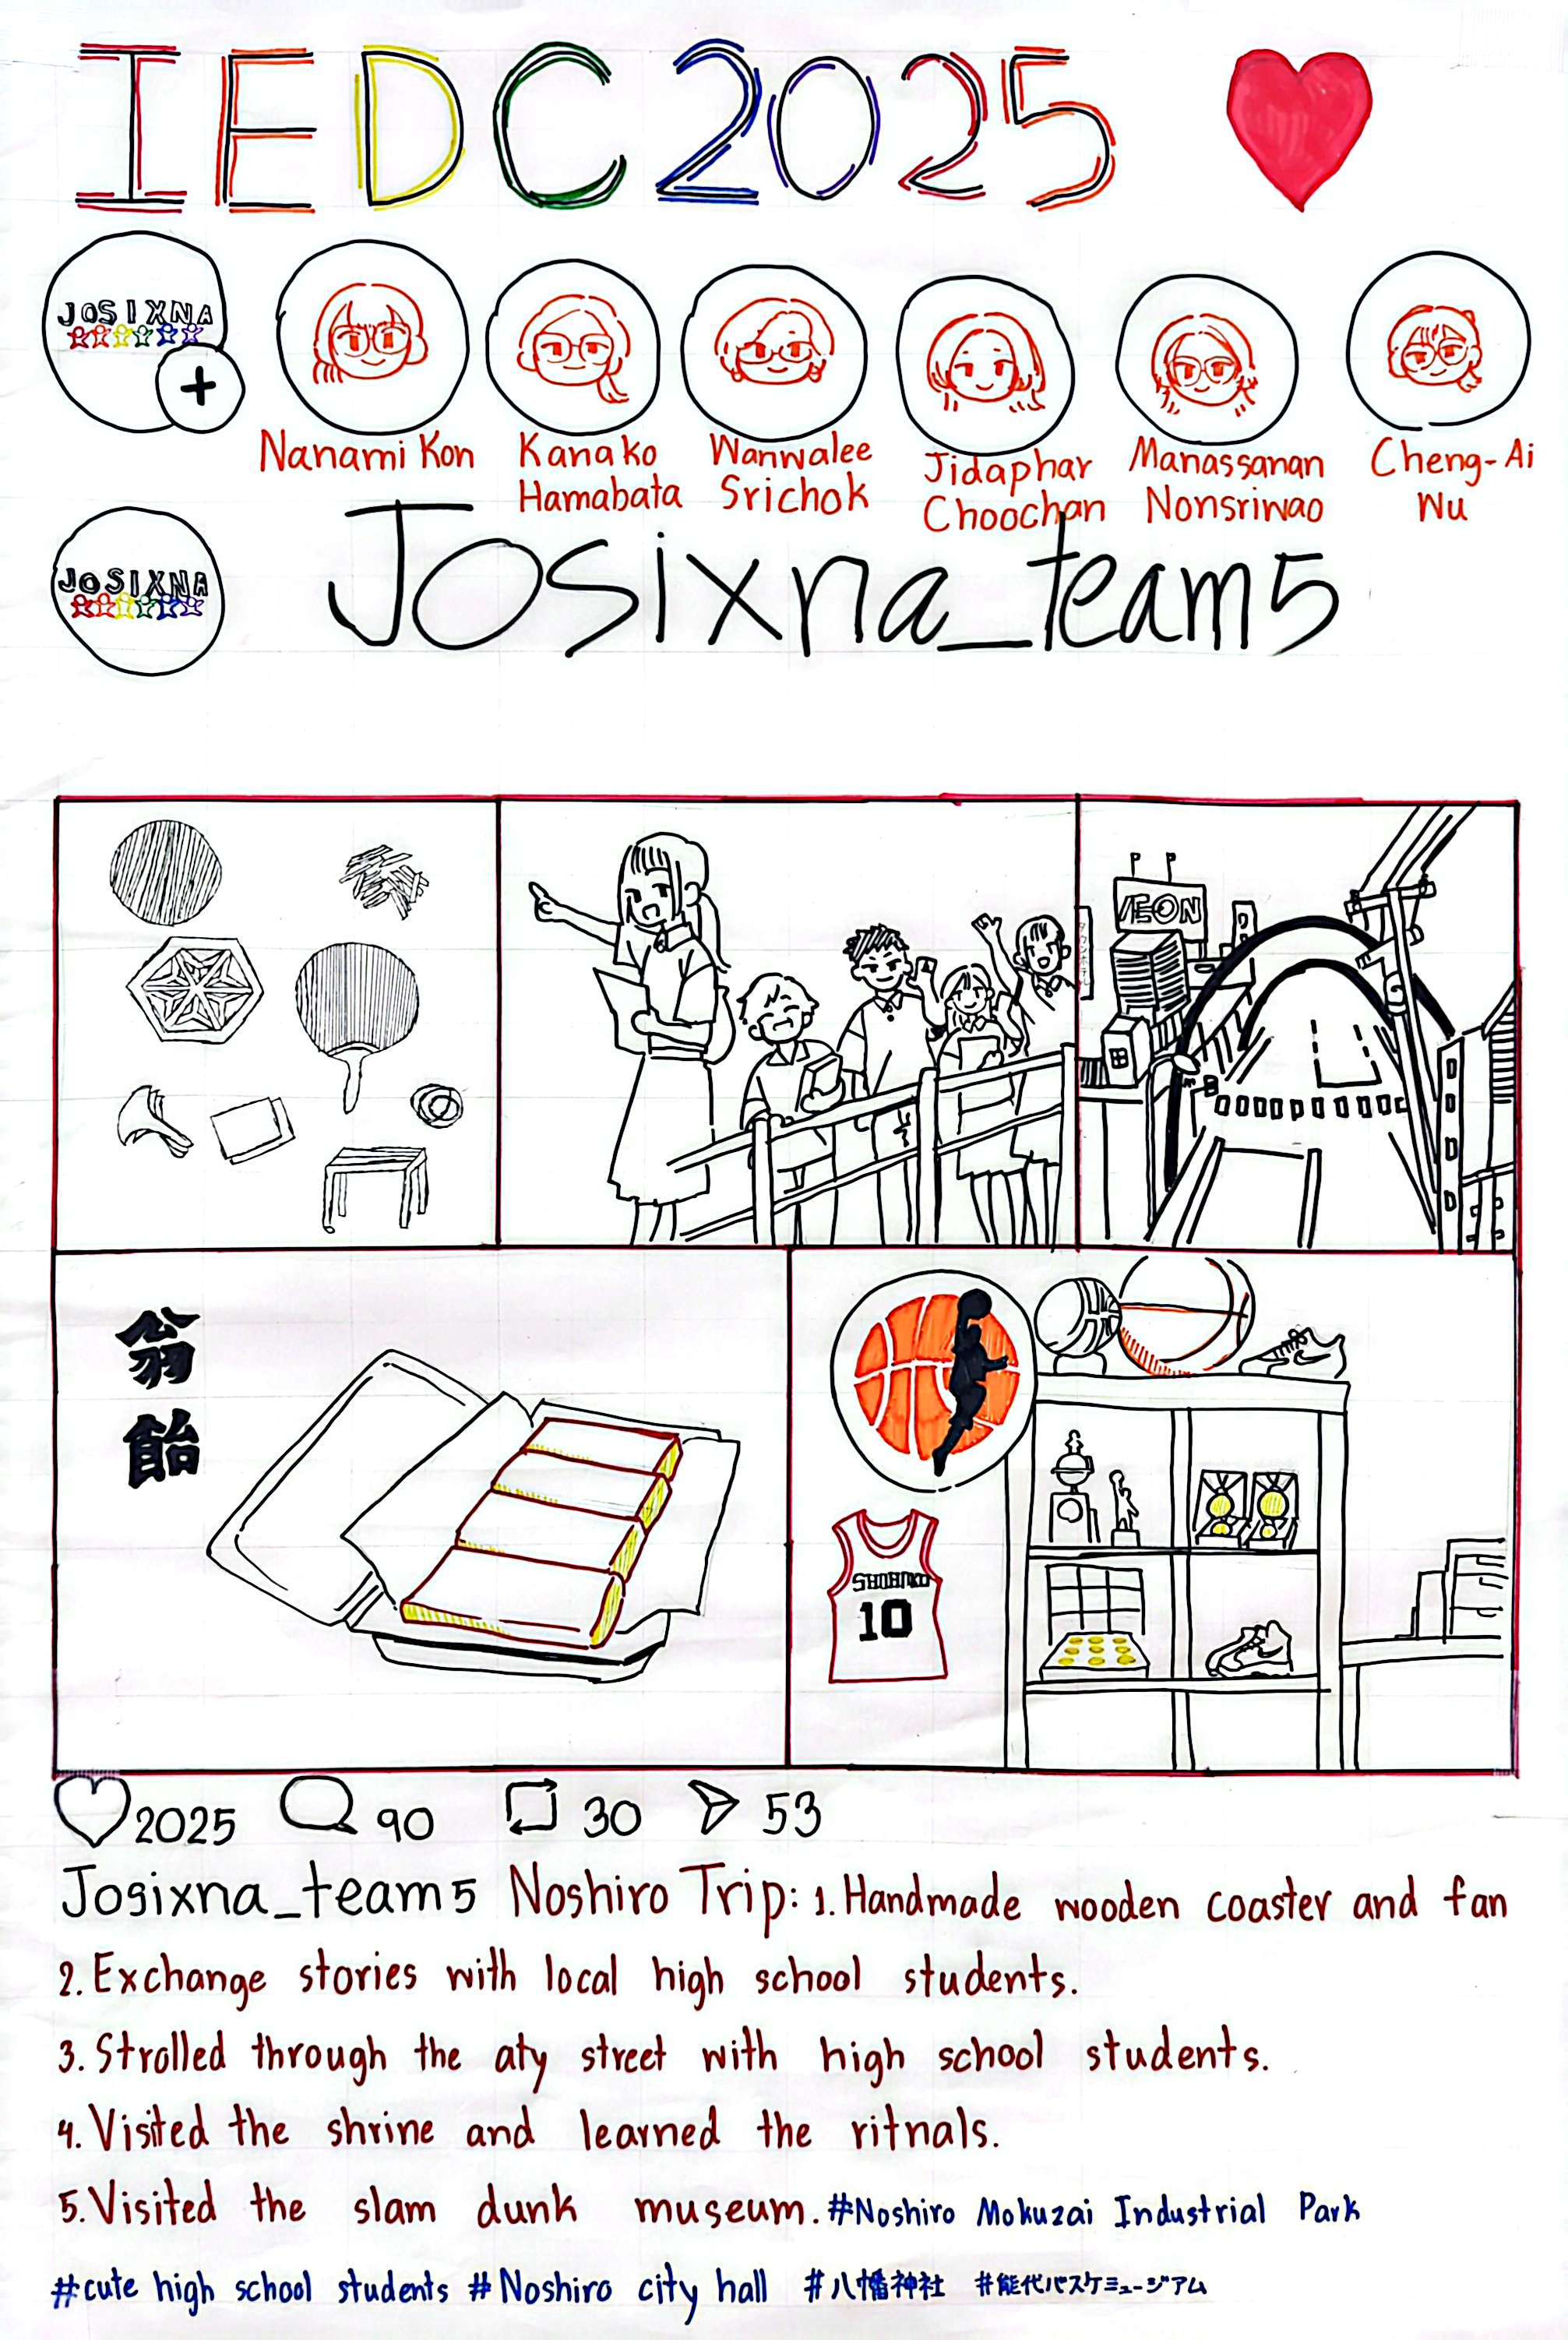 IEDC 2025
JOSIXNA
+
Nanami Kon
Kanako
Hamabata
Wanwalee
Srichok
Jidaphar
Choochan
Manassanan
Nonsriwao
Cheng-Ai
Wu
JOSIXNA
Josixna_team5
ÆON
タウンホテル
翁
飴
SHOHOKU
10
2025
90
30
53
Josixna_team5 Noshiro Trip: 1. Handmade wooden coaster and fan
2. Exchange stories with local high school students.
3. Strolled through the aty street with high school students.
4. Visited the shrine and learned the ritnals.
5. Visited the slam dunk museum. #Noshiro Mokuzai Industrial Park
#cute high school students #Noshiro city hall #八幡神社 #能代バスケミュージアム